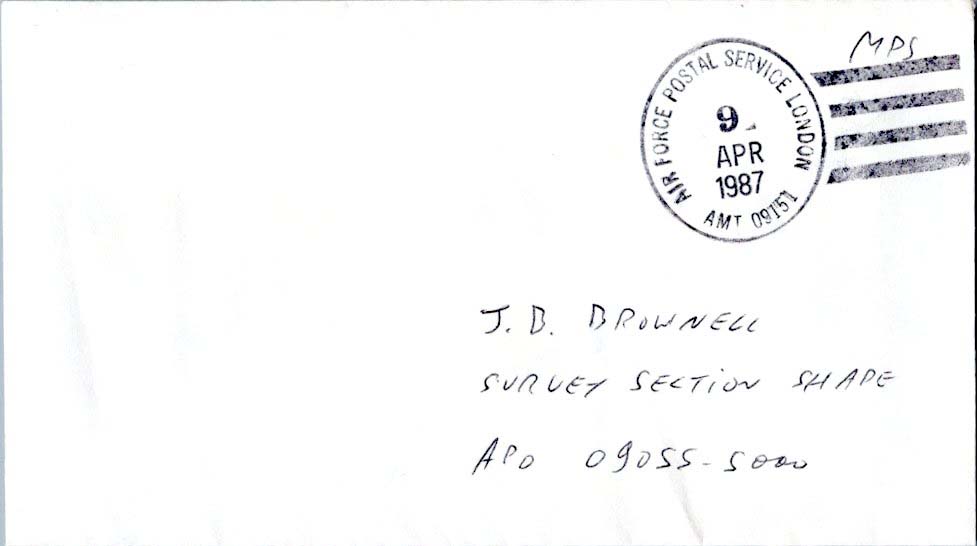 MPS
AIR FORCE POSTAL SERVICE LONDON
9
APR
1987
AMT 09151
J. B. BROWNELL
SURVEY SECTION SHAPE
APO 09055-5000